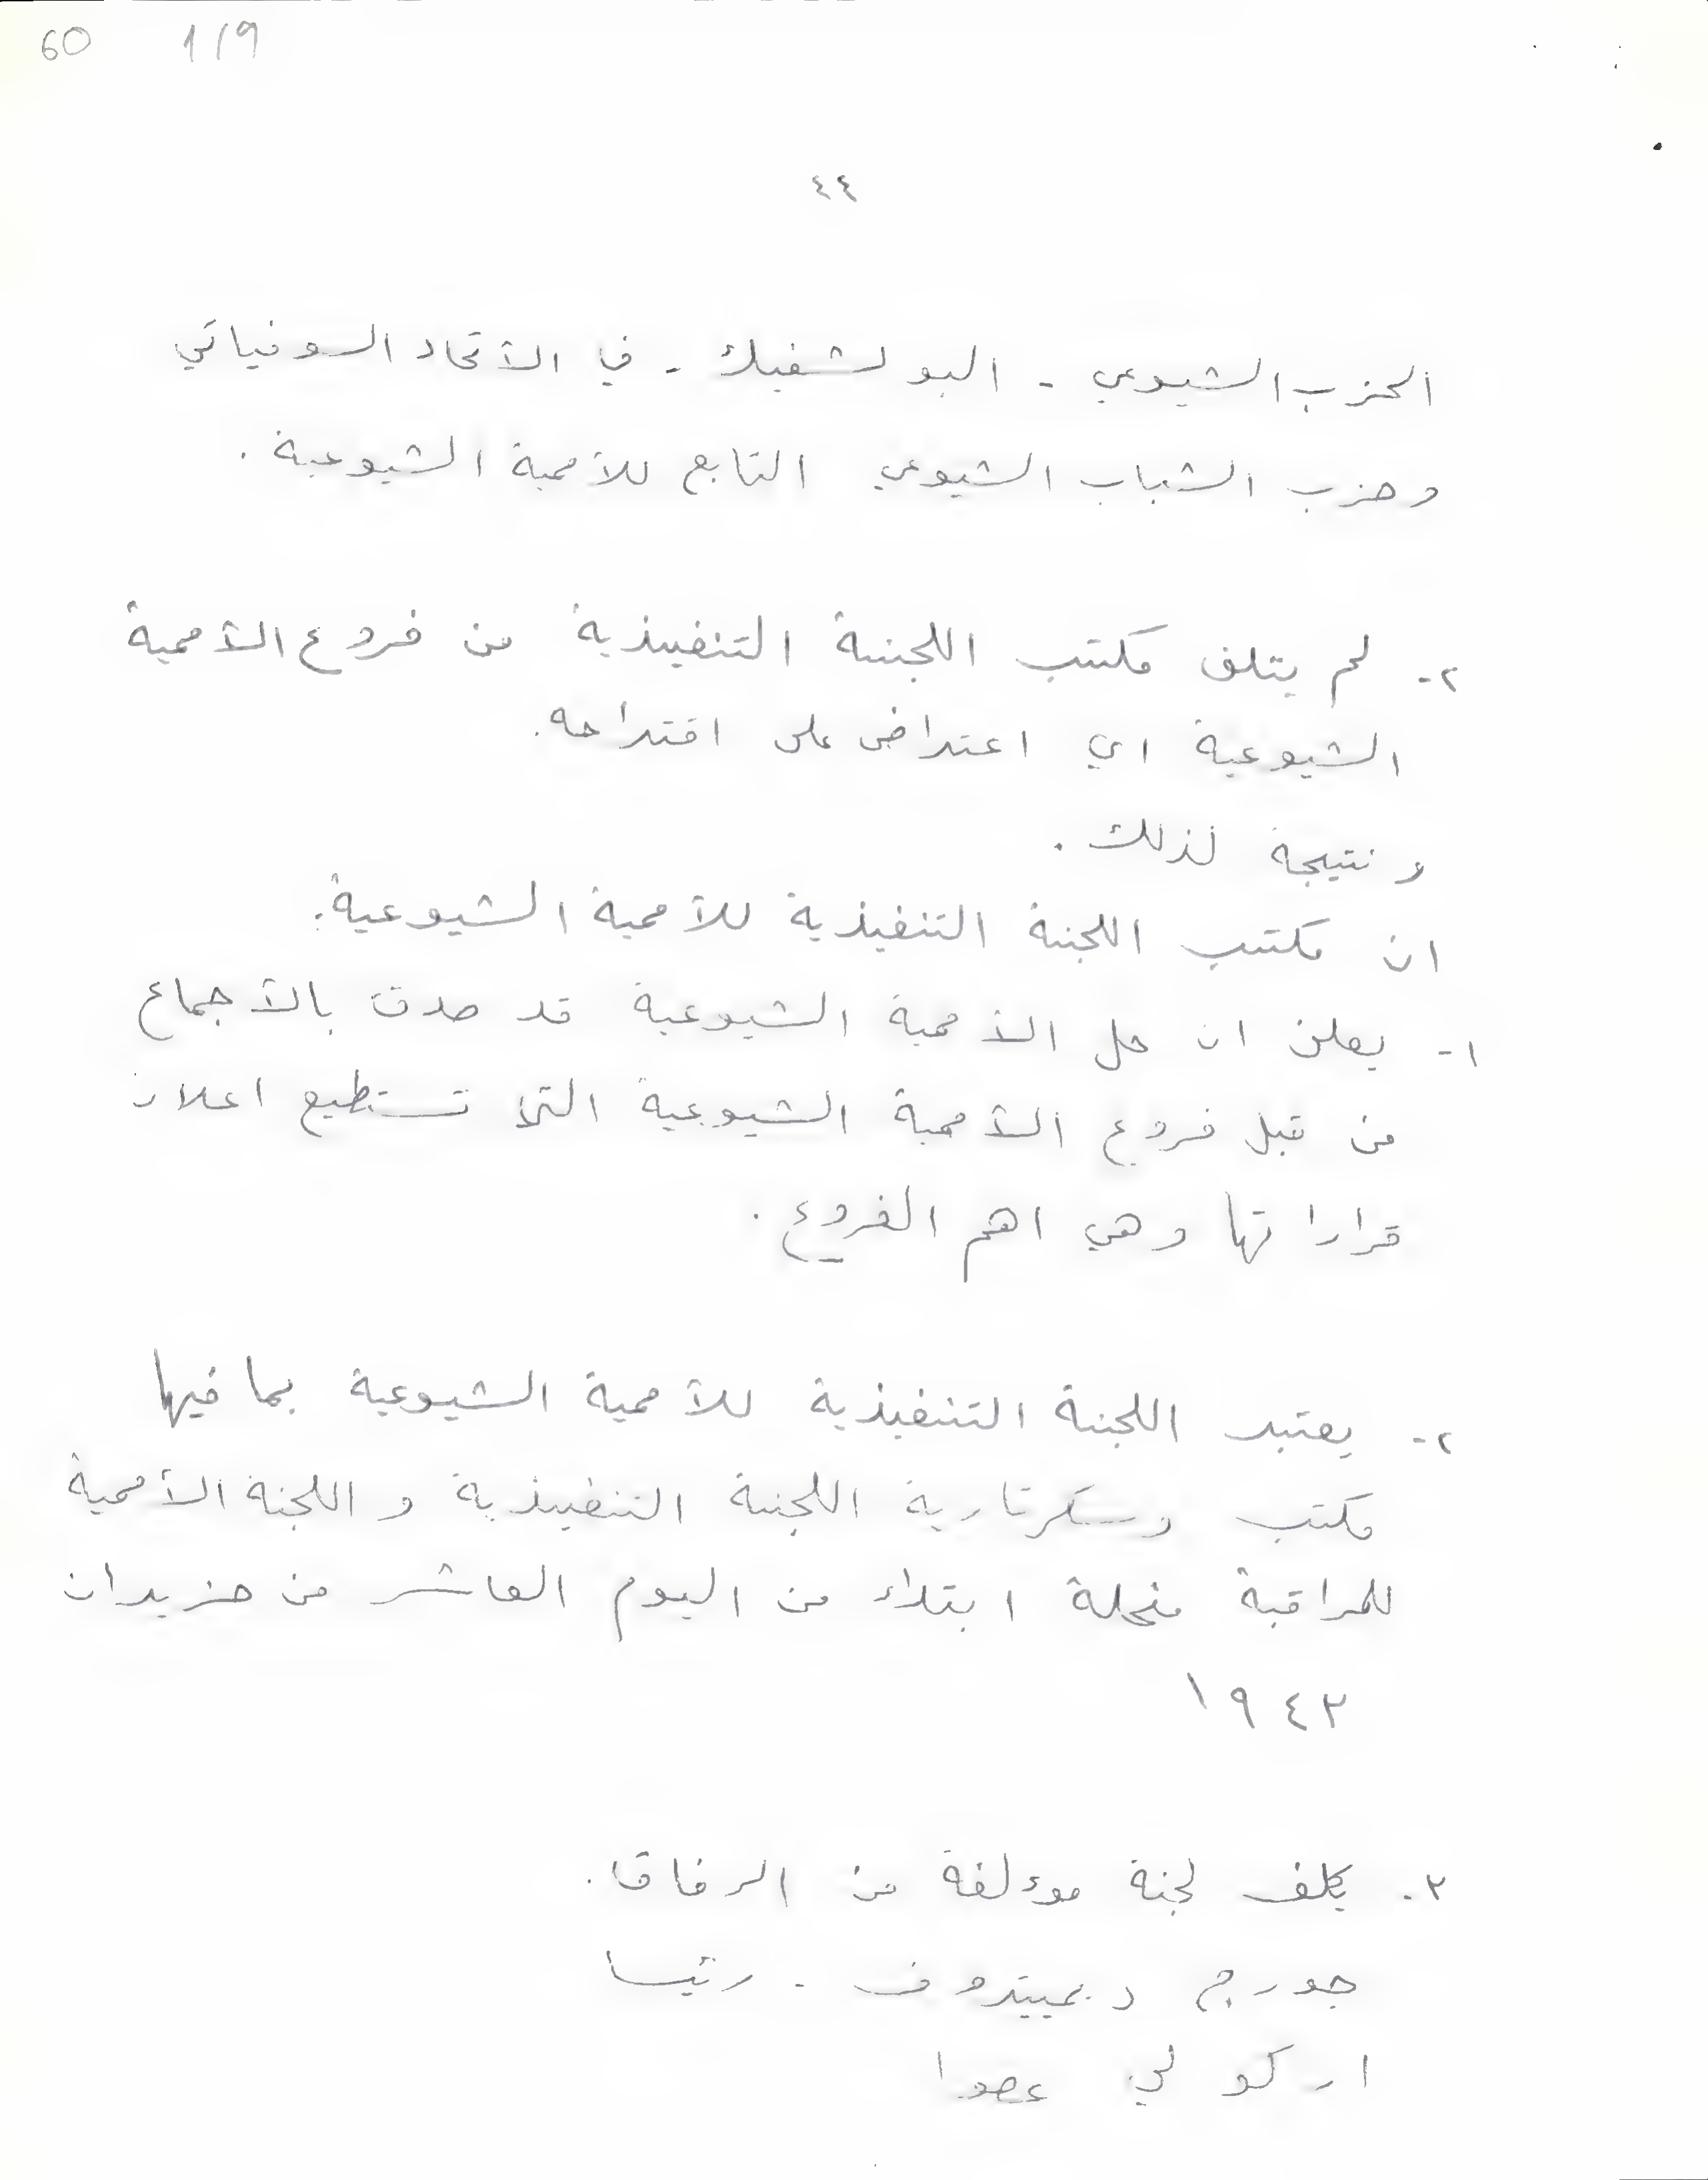 60 1/9
٤٤
الحزب الشيوعي - البولشفيك - في الأتحاد السوفياتي
وحزب الشباب الشيوعي التابع للأممية الشيوعية .
٢- لم يتلق مكتب اللجنة التنفيذية من فروع الأممية
الشيوعية اي اعتراض على اقتراحه.
ونتيجة لذلك .
ان مكتب اللجنة التنفيذية للأممية الشيوعية.
١- يعلن ان حل الأممية الشيوعية قد صدق بالأجماع
من قبل فروع الأممية الشيوعية التي تستطيع اعلان
قراراتها وهي اهم الفروع .
٢- يعتبر اللجنة التنفيذية للأممية الشيوعية بما فيها
مكتب وسكرتارية اللجنة التنفيذية واللجنة الأممية
للمراقبة منحلة ابتداء من اليوم العاشر من حزيران
١٩٤٣
٣- يكلف لجنة موءلفة من الرفاق.
جورج ديمييتروف - رئيسا
اركولي عضوا